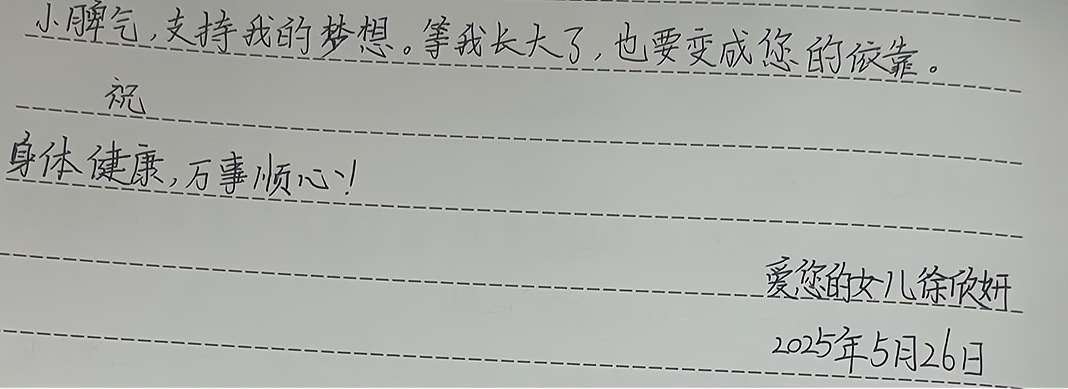 小脾气，支持我的梦想。等我长大了，也要变成您的依靠。
祝
身体健康，万事顺心！
爱您的女儿徐欣妍
2025年5月26日